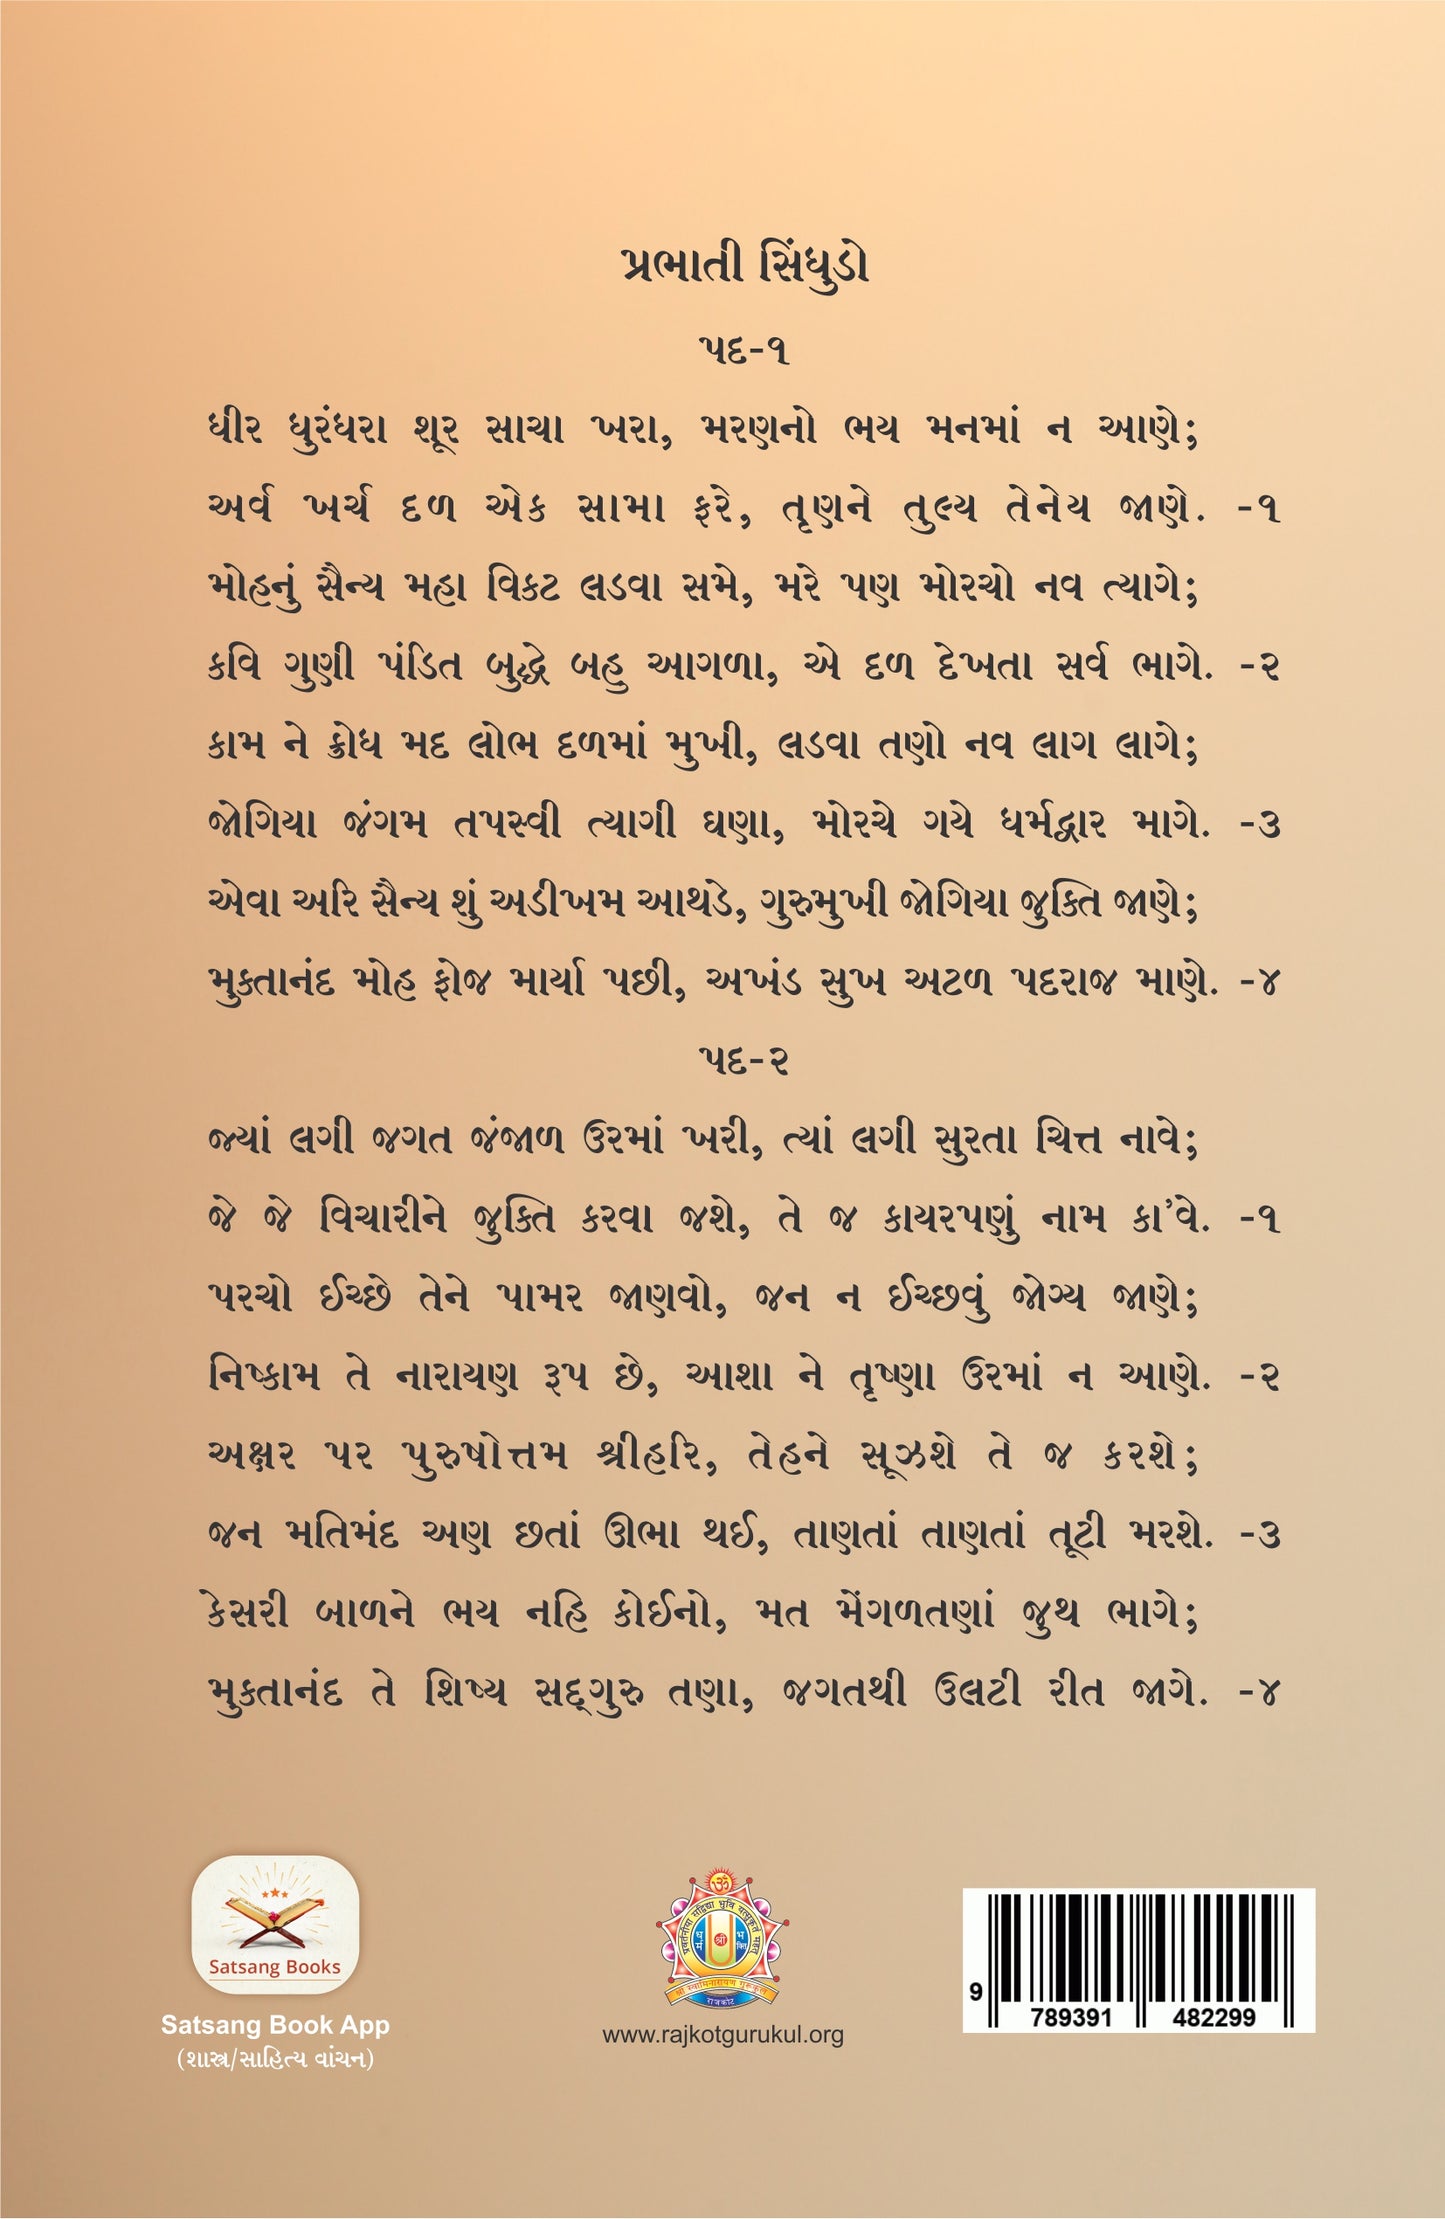 પ્રભાતી સિંધુડો
પદ-૧
ધીર ધુરંધરા શૂર સાચા ખરા, મરણનો ભય મનમાં ન આણે;
અર્વ ખર્ચ દળ એક સામા ફરે, તૃણને તુલ્ય તેનેય જાણે. -૧
મોહનું સૈન્ય મહા વિકટ લડવા સમે, મરે પણ મોરચો નવ ત્યાગે;
કવિ ગુણી પંડિત બુદ્ધે બહુ આગળા, એ દળ દેખતા સર્વ ભાગે. -૨
કામ ને ક્રોધ મદ લોભ દળમાં મુખી, લડવા તણો નવ લાગ લાગે;
જોગિયા જંગમ તપસ્વી ત્યાગી ઘણા, મોરચે ગયે ધર્મદ્વાર માગે. -૩
એવા અરિ સૈન્ય શું અડીખમ આથડે, ગુરુમુખી જોગિયા જુક્તિ જાણે;
મુક્તાનંદ મોહ ફોજ માર્યા પછી, અખંડ સુખ અટળ પદરાજ માણે. -૪
પદ-૨
જ્યાં લગી જગત જંજાળ ઉરમાં ખરી, ત્યાં લગી સુરતા ચિત્ત નાવે;
જે જે વિચારીને જુક્તિ કરવા જશે, તે જ કાયરપણું નામ કા'વે. -૧
પરચો ઈચ્છે તેને પામર જાણવો, જન ન ઈચ્છવું જોગ્ય જાણે;
નિષ્કામ તે નારાયણ રૂપ છે, આશા ને તૃષ્ણા ઉરમાં ન આણે. -૨
અક્ષર પર પુરુષોત્તમ શ્રીહરિ, તેહને સૂઝશે તે જ કરશે;
જન મતિમંદ અણ છતાં ઊભા થઈ, તાણતાં તાણતાં તૂટી મરશે. -૩
કેસરી બાળને ભય નહિ કોઈનો, મત મેંગળતણાં જુથ ભાગે;
મુક્તાનંદ તે શિષ્ય સદ્‌ગુરુ તણા, જગતથી ઉલટી રીત જાગે. -૪
Satsang Books
Satsang Book App
(શાસ્ત્ર/સાહિત્ય વાંચન)
ૐ
પ્રવર્તનીયા સદ્વિદ્યા ભુવિ યત્સુકૃતં મહત્
ધર્મ શ્રી ભક્તિ
શ્રી સ્વામિનારાયણ ગુરુકુલ
રાજકોટ
www.rajkotgurukul.org
9 789391 482299